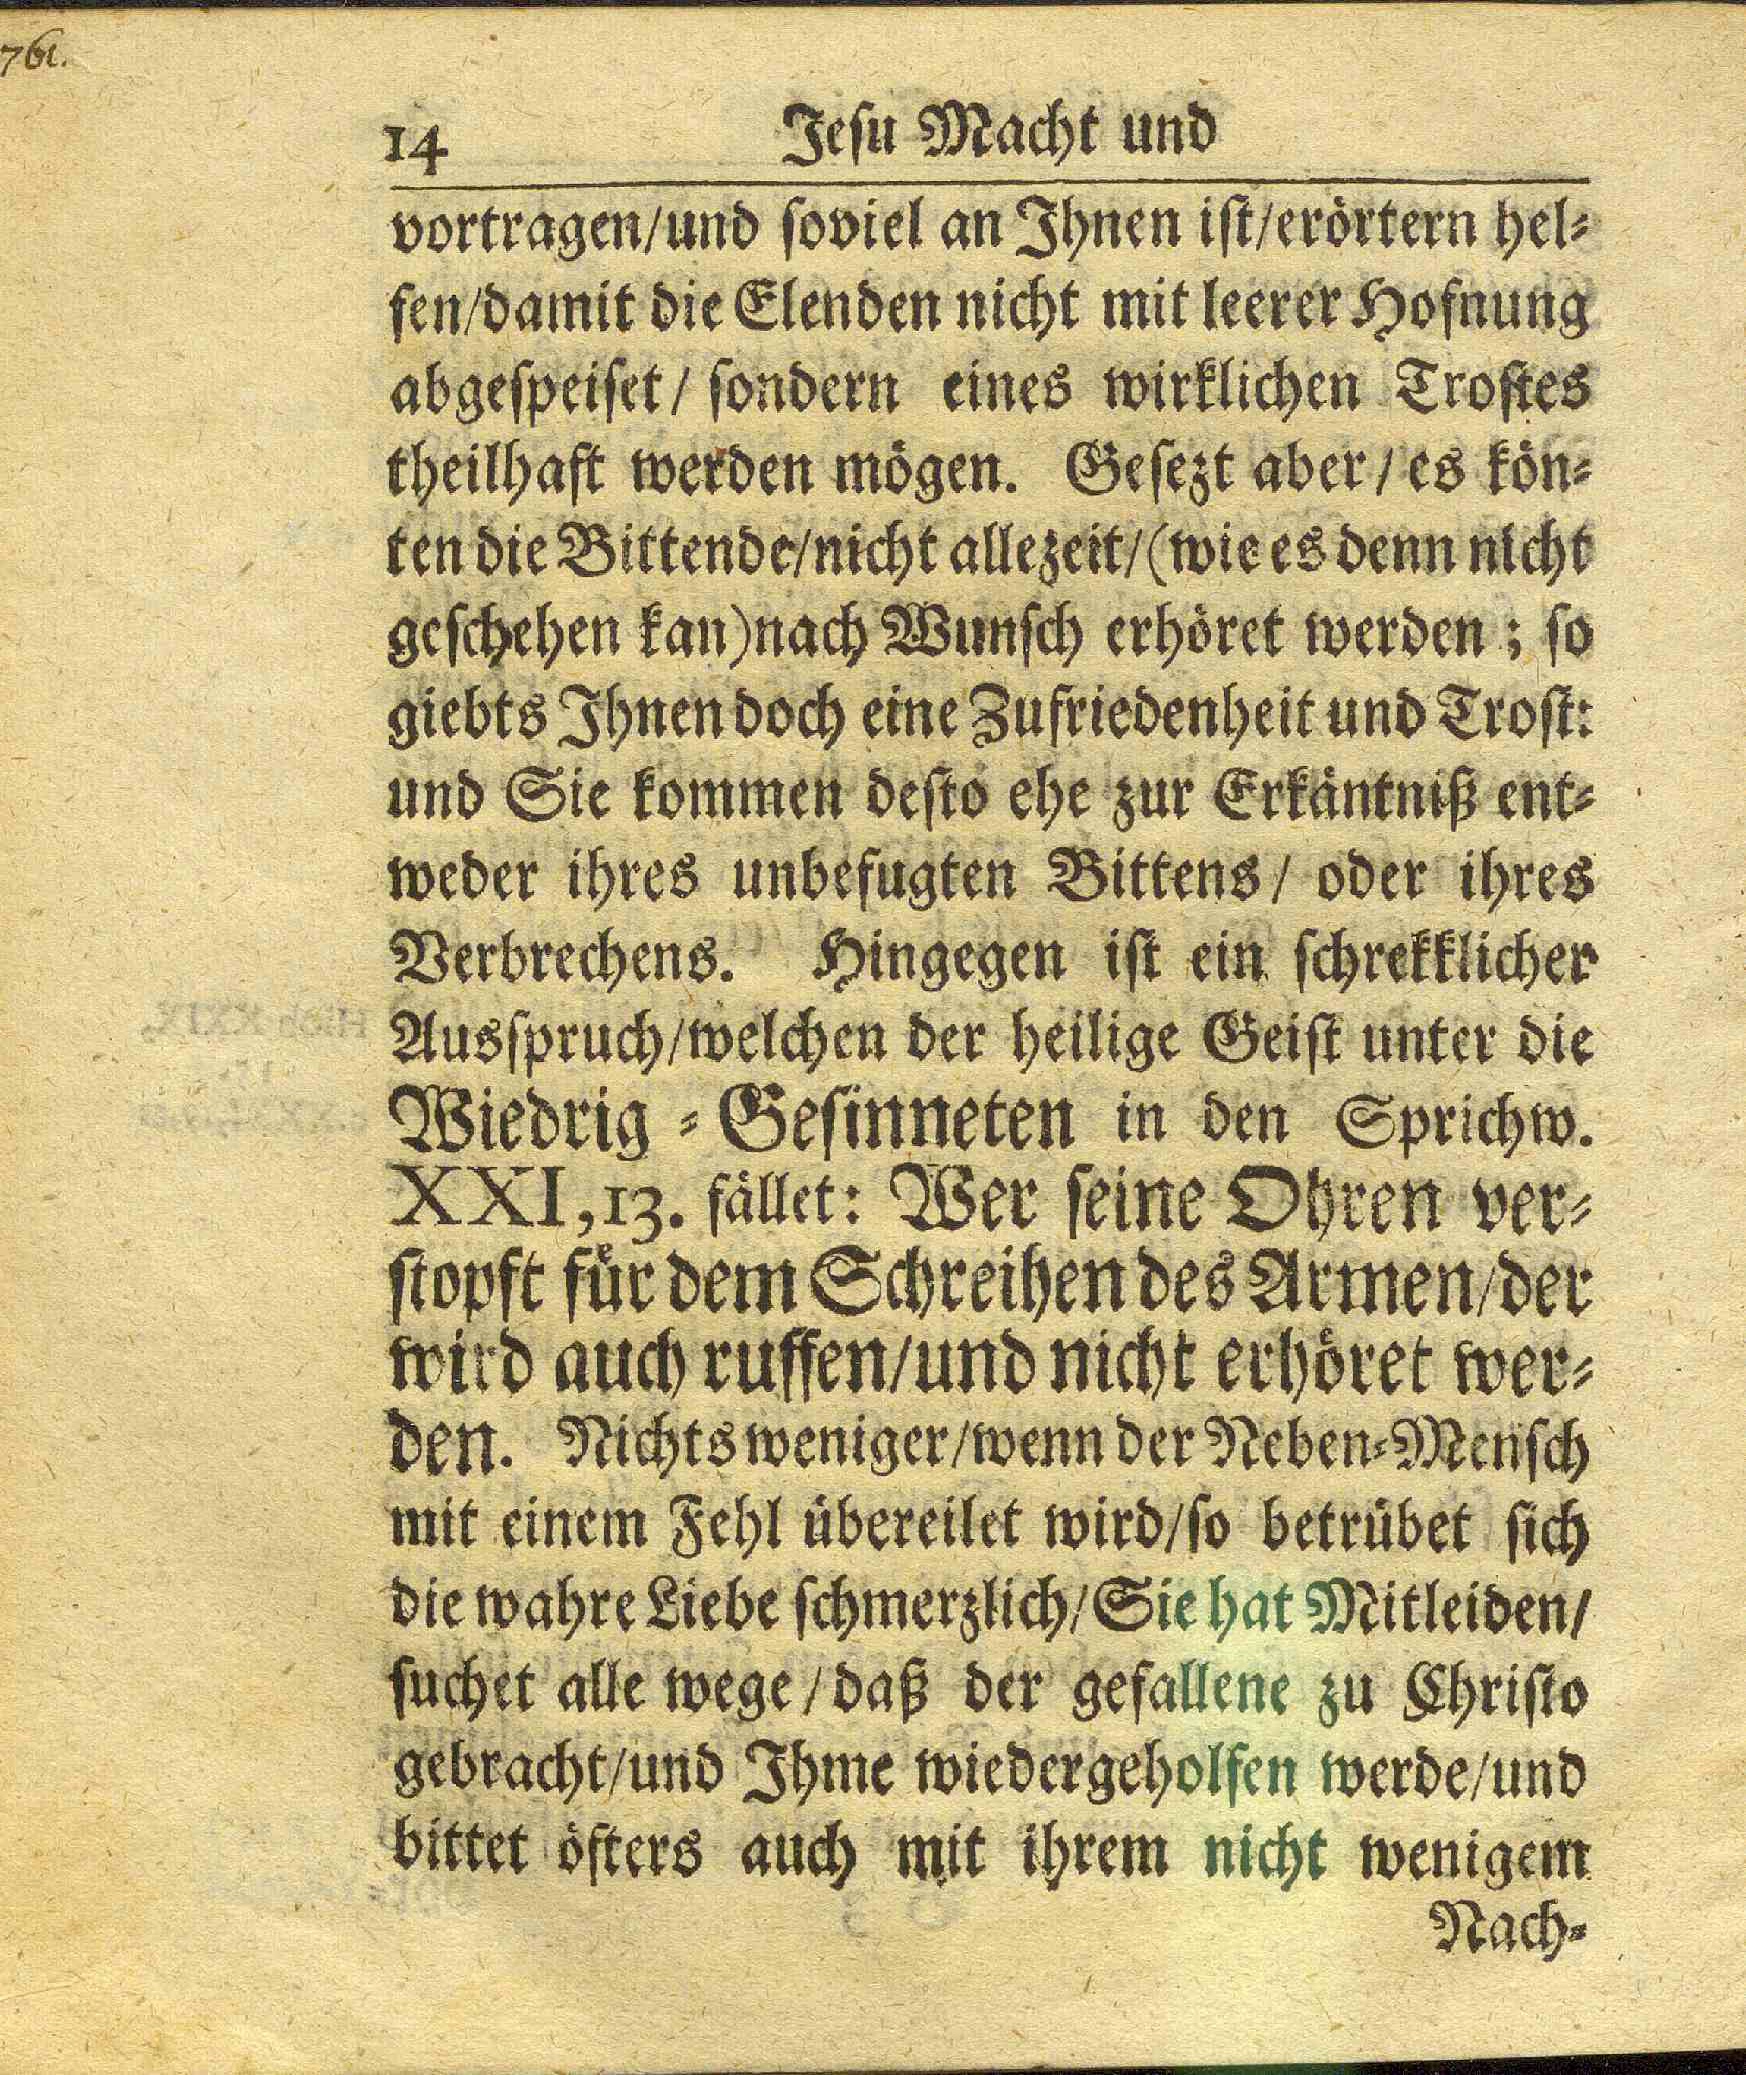 761.
14 Jesu Macht und
vortragen/und soviel an Ihnen ist/erörtern hel-
fen/damit die Elenden nicht mit leerer Hofnung
abgespeiset/ sondern eines wirklichen Trostes
theilhaft werden mögen. Gesezt aber/ es kön-
ten die Bittende/nicht allezeit/(wie es denn nicht
geschehen kan)nach Wunsch erhöret werden; so
giebts Ihnen doch eine Zufriedenheit und Trost:
und Sie kommen desto ehe zur Erkäntniß ent-
weder ihres unbefugten Bittens/ oder ihres
Verbrechens. Hingegen ist ein schrekklicher
Ausspruch/welchen der heilige Geist unter die
Wiedrig-Gesinneten in den Sprichw.
XXI,13. fället: Wer seine Ohren ver-
stopft für dem Schreihen des Armen/der
wird auch ruffen/und nicht erhöret wer-
den. Nichts weniger/wenn der Neben-Mensch
mit einem Fehl übereilet wird/so betrübet sich
die wahre Liebe schmerzlich/Sie hat Mitleiden/
suchet alle wege/daß der gefallene zu Christo
gebracht/und Ihme wiedergeholfen werde/und
bittet öfters auch mit ihrem nicht wenigem
Nach-